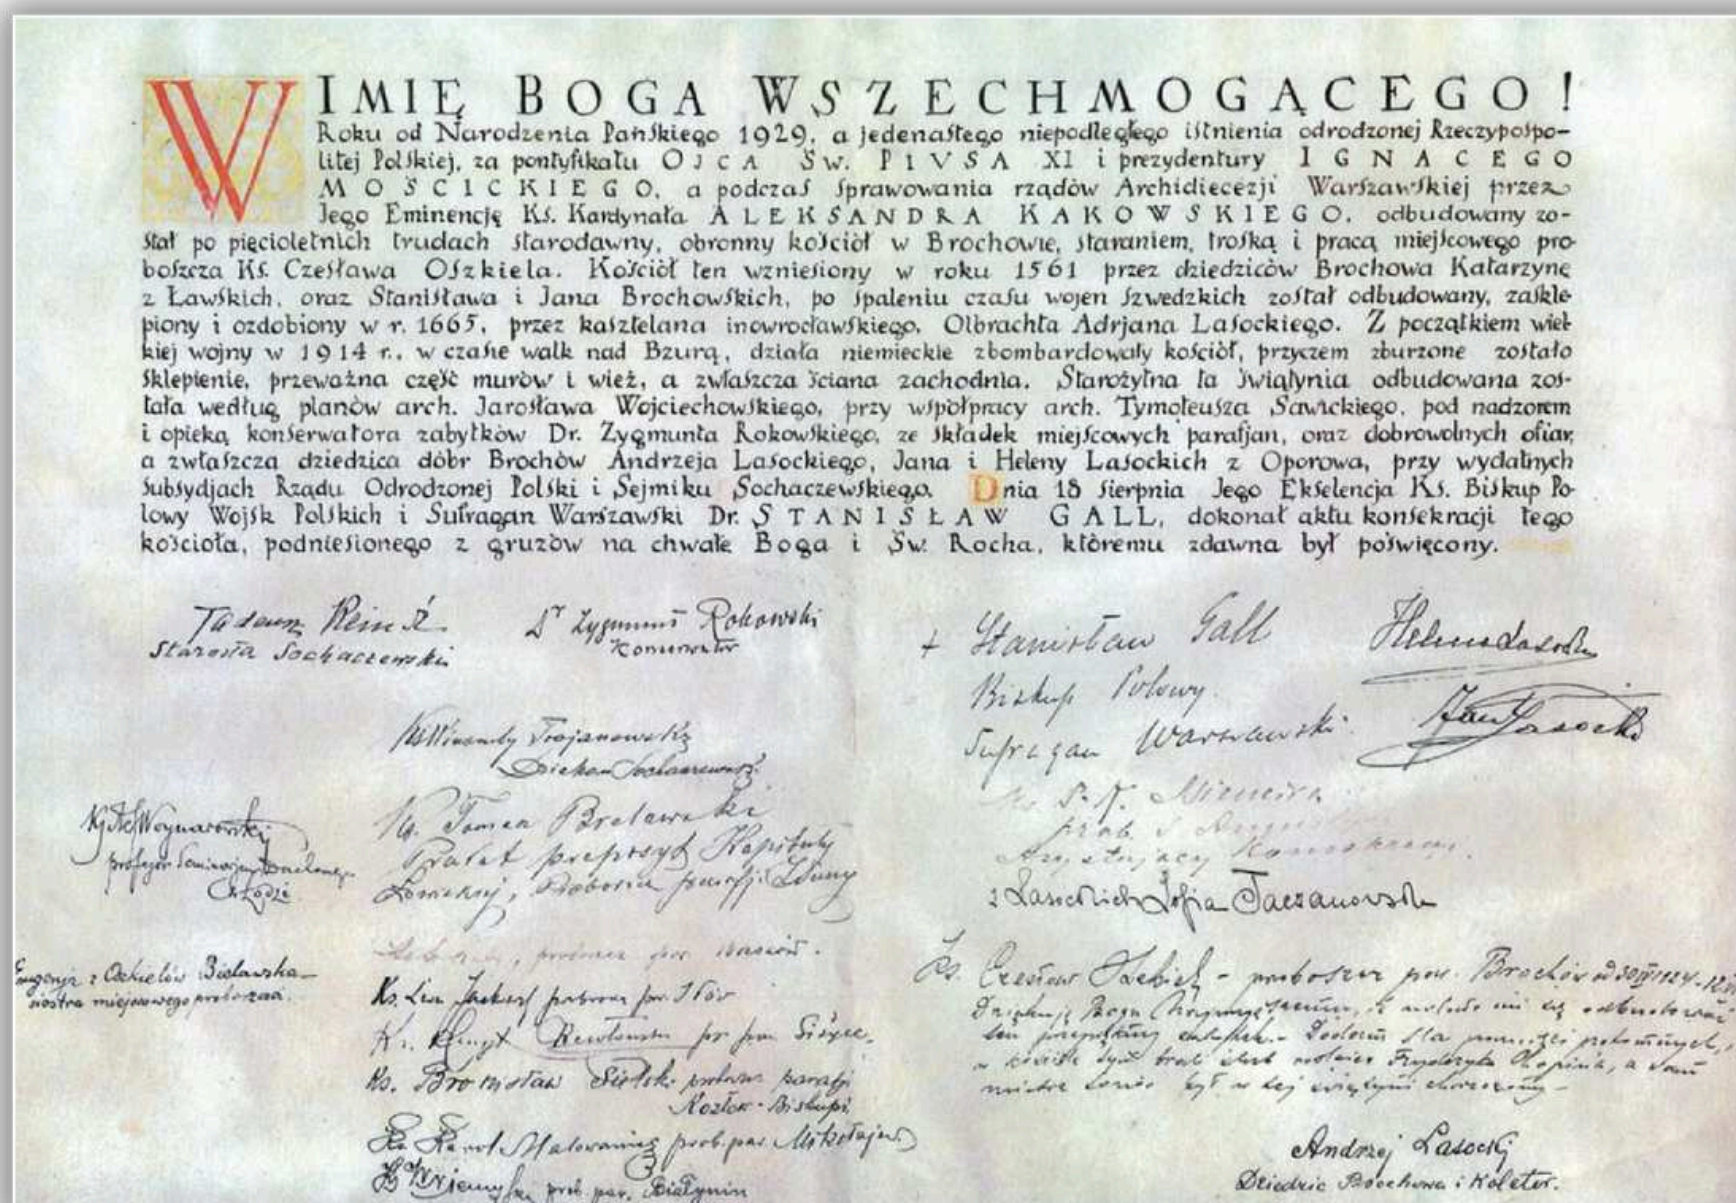 W IMIĘ BOGA WSZECHMOGĄCEGO!
Roku od Narodzenia Pańskiego 1929, a jedenastego niepodległego istnienia odrodzonej Rzeczypospo-
litej Polskiej, za pontyfikatu OJCA ŚW. PIVSA XI i prezydentury IGNACEGO
MOŚCICKIEGO, a podczas sprawowania rządów Archidiecezji Warszawskiej przez
Jego Eminencję Ks. Kardynała ALEKSANDRA KAKOWSKIEGO, odbudowany zo-
stał po pięcioletnich trudach starodawny, obronny kościół w Brochowie, staraniem, troską i pracą miejscowego pro-
boszcza Ks. Czesława Oszkiela. Kościół ten wzniesiony w roku 1561 przez dziedziców Brochowa Katarzynę
z Ławskich, oraz Stanisława i Jana Brochowskich, po spaleniu czasu wojen szwedzkich został odbudowany, zaskle-
piony i ozdobiony w r. 1665, przez kasztelana inowrocławskiego, Olbrachta Adrjana Lasockiego. Z początkiem wiel-
kiej wojny w 1914 r., w czasie walk nad Bzurą, działa niemieckie zbombardowały kościół, przyczem zburzone zostało
sklepienie, przeważna część murów i wież, a zwłaszcza ściana zachodnia. Starożytna ta świątynia odbudowana zos-
tała według planów arch. Jarosława Wojciechowskiego, przy współpracy arch. Tymoteusza Sawickiego, pod nadzorem
i opieką konserwatora zabytków Dr. Zygmunta Rokowskiego, ze składek miejscowych parafjan, oraz dobrowolnych ofiar,
a zwłaszcza dziedzica dóbr Brochów Andrzeja Lasockiego, Jana i Heleny Lasockich z Oporowa, przy wydatnych
subsydjach Rządu Odrodzonej Polski i Sejmiku Sochaczewskiego. Dnia 18 sierpnia Jego Ekselencja Ks. Biskup Po-
lowy Wojsk Polskich i Sufragan Warszawski Dr. STANISŁAW GALL, dokonał aktu konsekracji tego
kościoła, podniesionego z gruzów na chwałę Boga i Św. Rocha, któremu zdawna był poświęcony.
Tadeusz
Starosta Sochaczewski
Dr Zygmunt Rokowski
Konserwator
+ Stanisław Gall
Biskup Polowy.
Sufragan Warszawski.
Helena Lasocka
Jan Lasocki
Trojanowski
Dziekan Sochaczewski
profesor
w Łodzi
Ks. Roman
Prałat prepozyt Kapituły
z Lasockich Zofja Taczanowska
z Oszkielów Bielawska
siostra miejscowego proboszcza.
Ks. Leon proboszcz par. Iłów
Ks. Bronisław proboszcz parafji
Kozłów-Biskupi
Ks. Karol prob. par. Mikołajew
prob. par. Białynin
Ks. Czesław Oszkiel - proboszcz par. Brochów od
Dziękuję Bogu
w kościele tym brali ślub rodzice Fryderyka Chopina, a sam
mistrz był w tej świątyni chrzczony -
Andrzej Lasocki
Dziedzic Brochowa i Kolator.